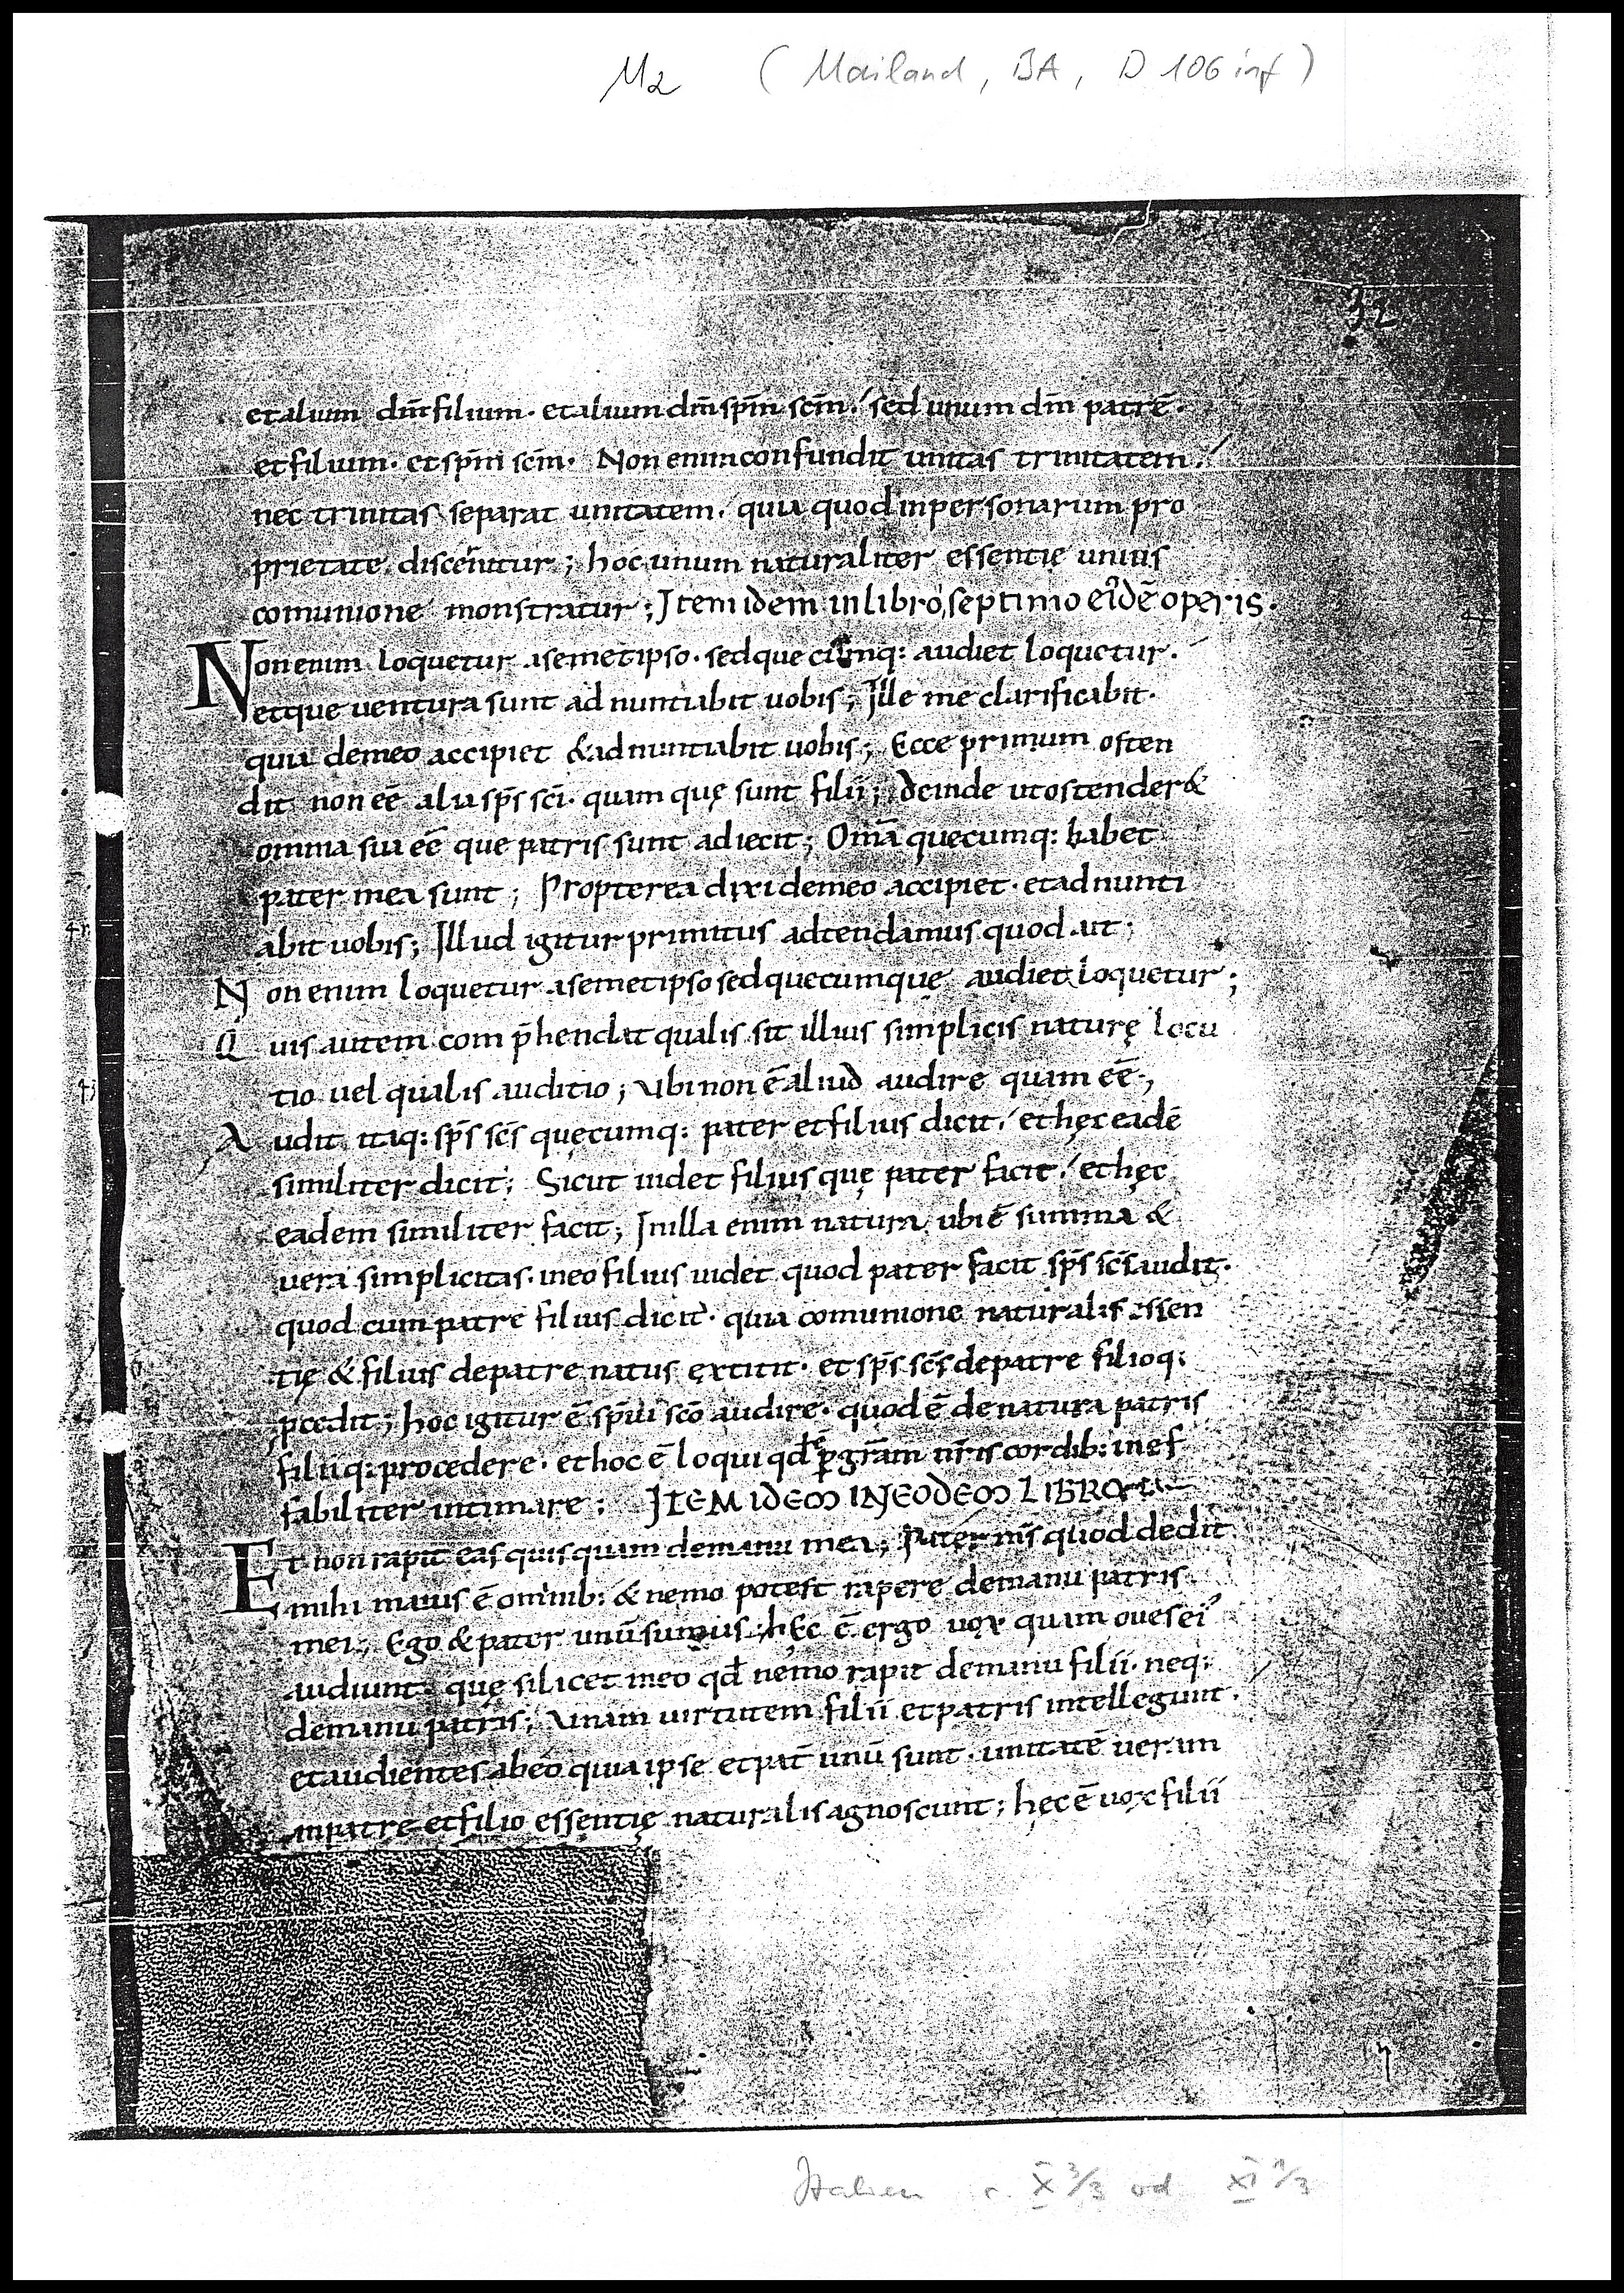 M2 (Mailand, BA, D 106 inf)
32
et alium dm̄ filium · et alium dm̄ sp̄m sc̄m ; sed unum dm̄ patrē ·
et filium · et sp̄m sc̄m · Non enim confundit unitas trinitatem ;
nec trinitas separat unitatem . quia quod in personarum pro
prietate discernitur ; hoc unum naturaliter essentię unius
comunione monstratur ; Item idem in libro septimo eidē operis .
Non enim loquetur a semetipso · sed que cumq: audiet loquetur .
et que uentura sunt ad nuntiabit uobis ; Ille me clarificabit .
quia de meo accipiet & ad nuntiabit uobis ; Ecce primum osten
dit non eē alia sp̄s sc̄i · quam quę sunt filii ; deinde ut ostender&
omnia sua eē que patris sunt adiecit ; Om̄a quecumq: habet
pater mea sunt ; Propterea dixi de meo accipiet · et ad nunti
abit uobis ; Illud igitur primitus adtendamus quod ait ;
Non enim loquetur a semetipso sed quecumque audiet loquetur ;
Quis autem comp̄hendat qualis sit illius simplicis naturę locu
tio uel qualis auditio ; ubi non ē aliud audire quam eē ;
Audit itaq: sp̄s sc̄s quęcumq: pater et filius dicit ; et hęc eadē
similiter dicit ; Sicut uidet filius quę pater facit ; et hęc
eadem similiter facit ; In illa enim natura ubi ē summa &
uera simplicitas · in eo filius uidet quod pater facit sp̄s sc̄s audit .
quod cum patre filius dicit · quia comunione naturalis essen
tię & filius de patre natus extitit · et sp̄s sc̄s de patre filioq:
pcedit ; hoc igitur ē sp̄ui sc̄o audire · quod ē de natura patris
filiiq: procedere · et hoc ē loqui qđ ē p gr̄am nr̄is cordib: inef
fabiliter intimare ; ITEM IDEM IN EODEM LIBRO
Et non rapit eas quisquam de manu mea ; Pater ms̄ quod dedit
mihi maius ē omnib: & nemo potest rapere de manu patris
mei ; Ego & pater unū sumus ; hęc ē ergo uox quam oues ei'
audiunt · quę silicet meo qđ nemo rapit de manu filii · neq:
de manu patris ; unam uirtutem filii et patris intellegunt .
et audientes ab eo quia ipse et pat̄ unū sunt · unitatē ueram
in patre et filio essentię naturalis agnoscunt ; hęc ē uox filii
Italien s. X 3/3 od XI 1/3